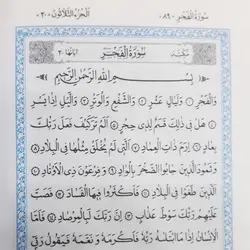 سُورَةُ الْفَجْرِ ٨٩ الْجُزْءُ الثَّلَاثُونَ ٣٠
سُورَةُ الْفَجْرِ
بِسْمِ اللَّهِ الرَّحْمَٰنِ الرَّحِيمِ
وَالْفَجْرِ ١ وَلَيَالٍ عَشْرٍ ٢ وَالشَّفْعِ وَالْوَتْرِ ٣ وَاللَّيْلِ إِذَا يَسْرِ
٤ هَلْ فِي ذَٰلِكَ قَسَمٌ لِذِي حِجْرٍ ٥ أَلَمْ تَرَ كَيْفَ فَعَلَ رَبُّكَ
بِعَادٍ ٦ إِرَمَ ذَاتِ الْعِمَادِ ٧ الَّتِي لَمْ يُخْلَقْ مِثْلُهَا فِي الْبِلَادِ
٨ وَثَمُودَ الَّذِينَ جَابُوا الصَّخْرَ بِالْوَادِ ٩ وَفِرْعَوْنَ ذِي الْأَوْتَادِ ١٠
الَّذِينَ طَغَوْا فِي الْبِلَادِ ١١ فَأَكْثَرُوا فِيهَا الْفَسَادَ ١٢ فَصَبَّ
عَلَيْهِمْ رَبُّكَ سَوْطَ عَذَابٍ ١٣ إِنَّ رَبَّكَ لَبِالْمِرْصَادِ ١٤ فَأَمَّا
الْإِنْسَانُ إِذَا مَا ابْتَلَاهُ رَبُّهُ فَأَكْرَمَهُ وَنَعَّمَهُ فَيَقُولُ رَبِّي